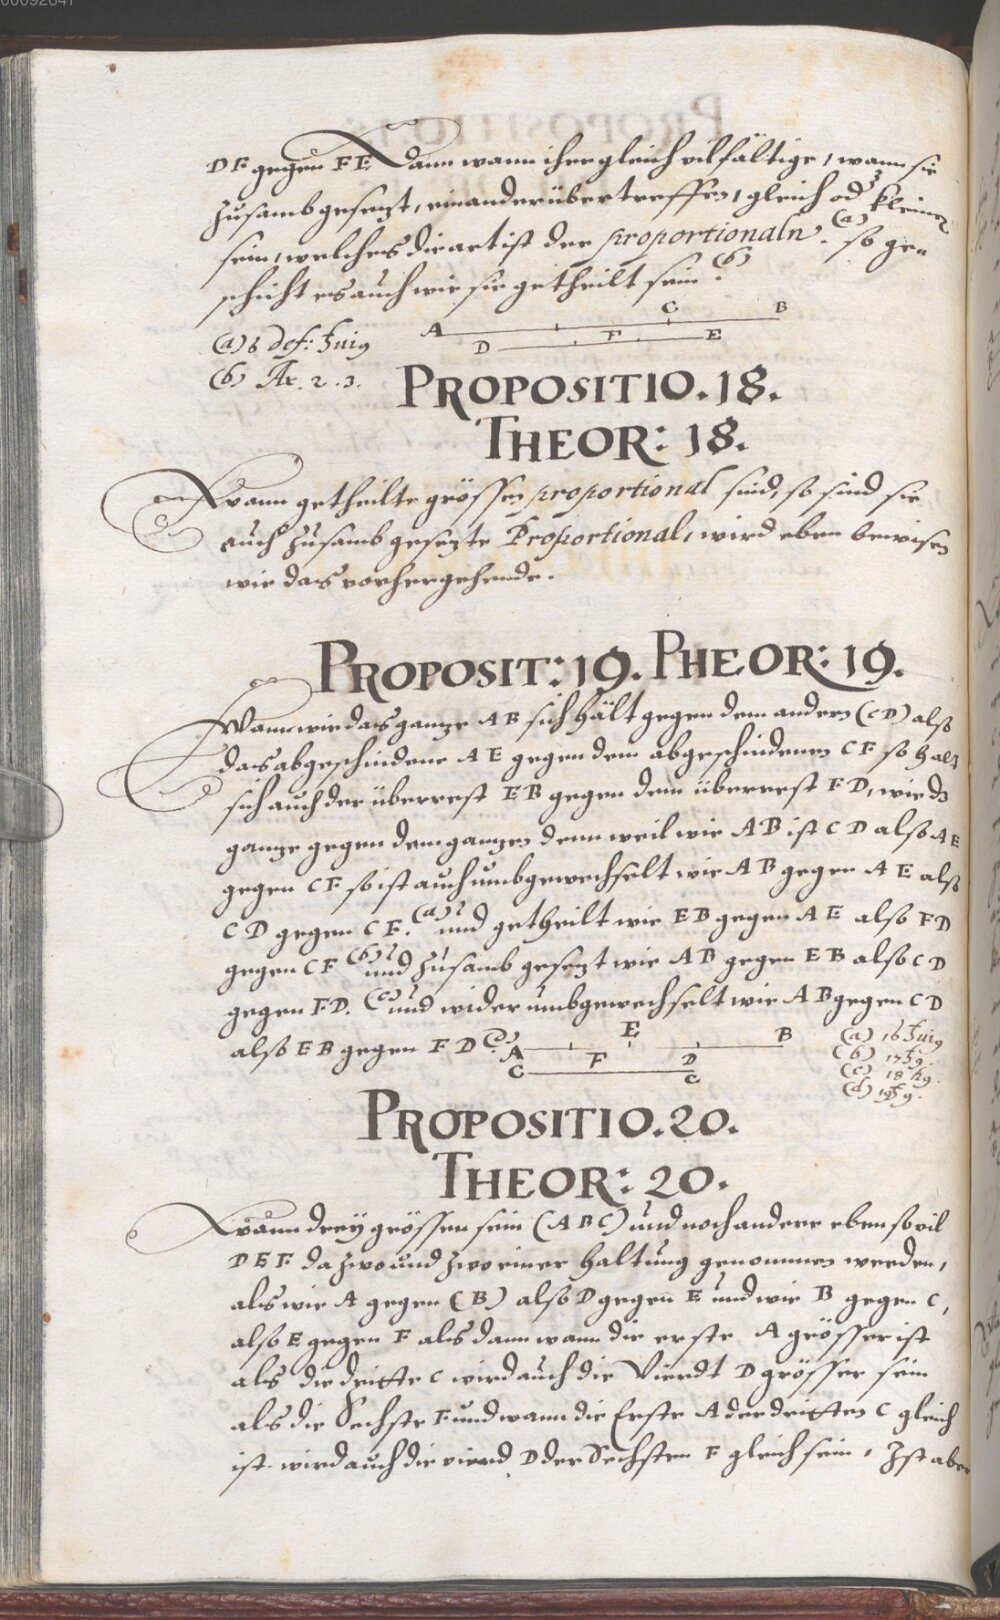 00092641
DF gegen FE. Dann wann ihrer gleich vilfältige, wann sie
zusamb gesetzt, einander übertreffen, gleich od kleiner
sein, welches die art ist der proportionaln. (a) so ge„
schicht es auch wie sie getheilt sein (b).
A C B
D F E
(a) 6 def: huig
(b) Ax. 2. 3.
PROPOSITIO. 18.
THEOR: 18.
Wann getheilte grössen proportional sind, so sind sie
auch zusamb gesetzte Proportional, wird eben bewisen
wie das vorhergehende.
PROPOSIT: 19. PHEOR: 19.
Wann wie das gantze AB sich hält gegen dem andern (CD) also
das abgeschindene AE gegen dem abgeschindenen CF so halt
sich auch der überrest EB gegen dem überrest FD, wie ds
gantze gegen dem gantzen denn weil wie AB ist CD also AE
gegen CF so ist auch umbgewechselt wie AB gegen AE also
CD gegen CF. (a) und getheilt wie EB gegen AE also FD
gegen CF (b) und zusamb gesetzt wie AB gegen EB also CD
gegen FD. (c) und wider umbgewechselt wie AB gegen CD
also EB gegen FD (d).
A E B
C F D
C
(a) 16 huig
(b) 17 hg.
(c) 18 hg.
(d) hg.
PROPOSITIO. 20.
THEOR: 20.
Wann drey grössen sein (ABC) und noch andere eben so vil
DEF da zwo und zwo einer haltung genommen werden,
als wie A gegen (B) also D gegen E und wie B gegen C,
also E gegen F als dann wann die erste A grösser ist
als die dritte C wird auch die Vierdt D grösser sein
als die Sechste F und wann die Erste A der dritten C gleich
ist wird auch die vierd D der Sechsten F gleich sein, Ist aber